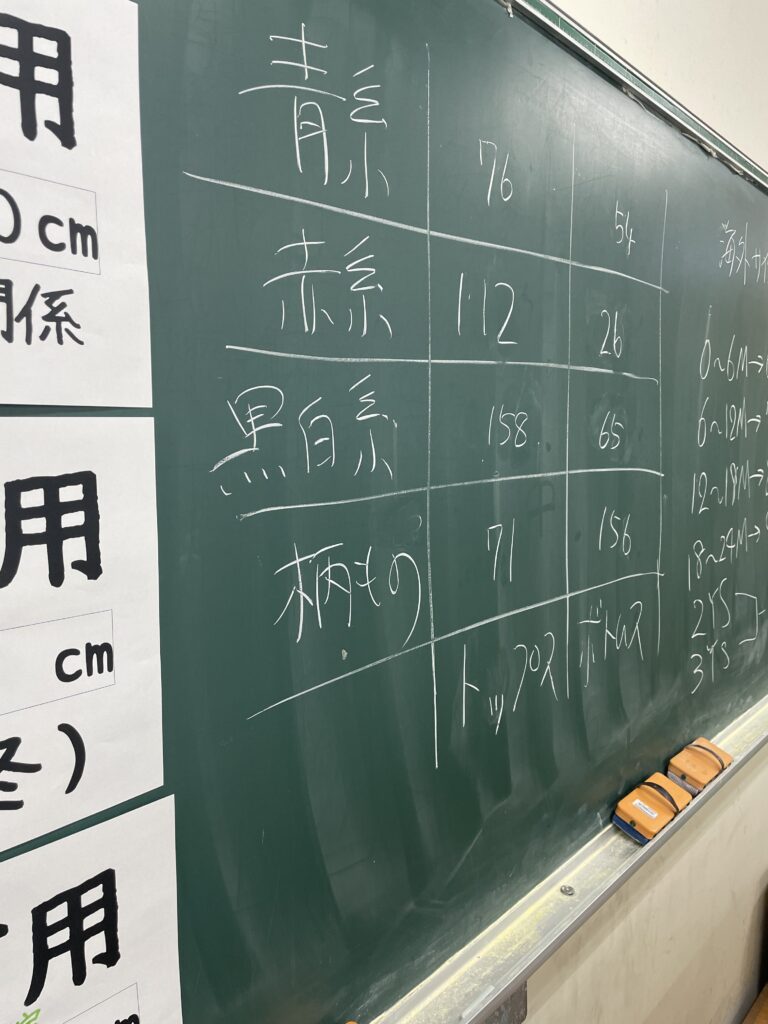 用
0cm
関係
用
cm
冬)
用
青系 76 54
赤系 112 26
黒白系 158 65
柄もの 71 156
トップス ボトムス
海外サイ
0~6M→
6~12M→
12~18M→
18~24M→
2TS
3TS
コー